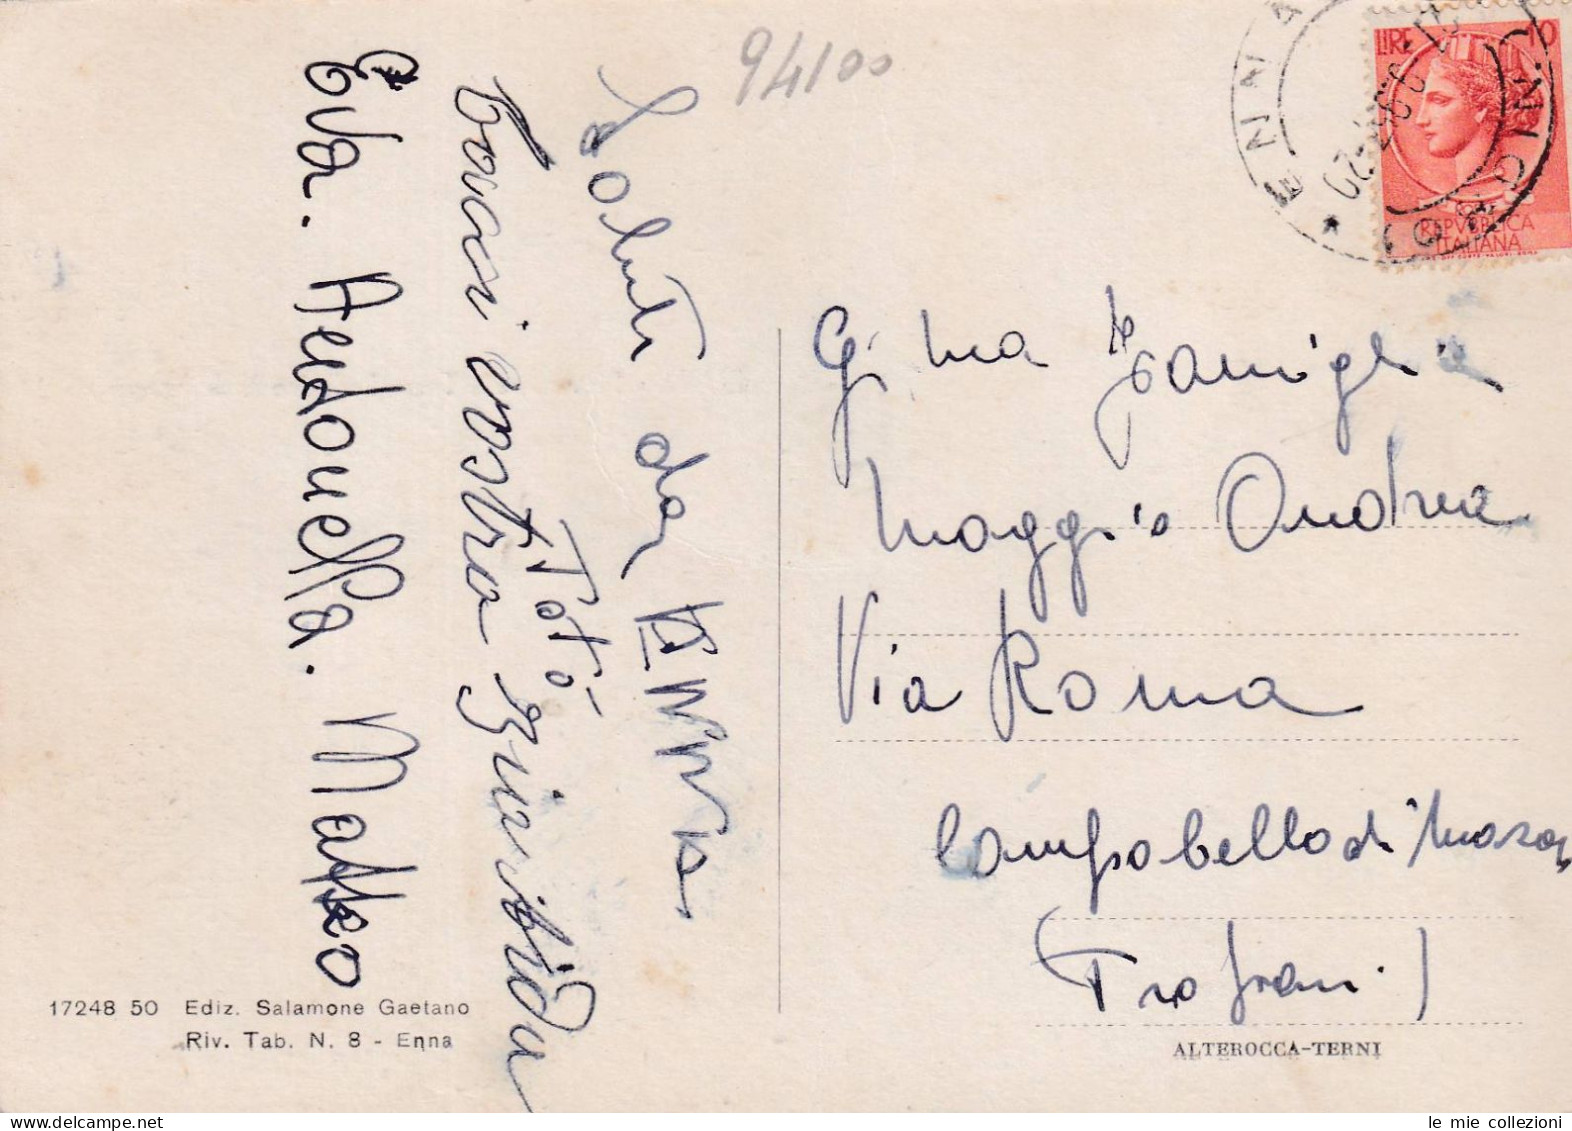 94100
Saluti da
Totò
Bacioni vostro
Eva. Antonella. Matteo
ENNA
LIRE 10
REPVBBLICA
ITALIANA
Gi ma Famiglia
Maggio Andrea
Via Roma
Campobello di Mazara
(Trapani)
17248 50 Ediz. Salamone Gaetano
Riv. Tab. N. 8 - Enna
ALTEROCCA-TERNI
le mie collezioni